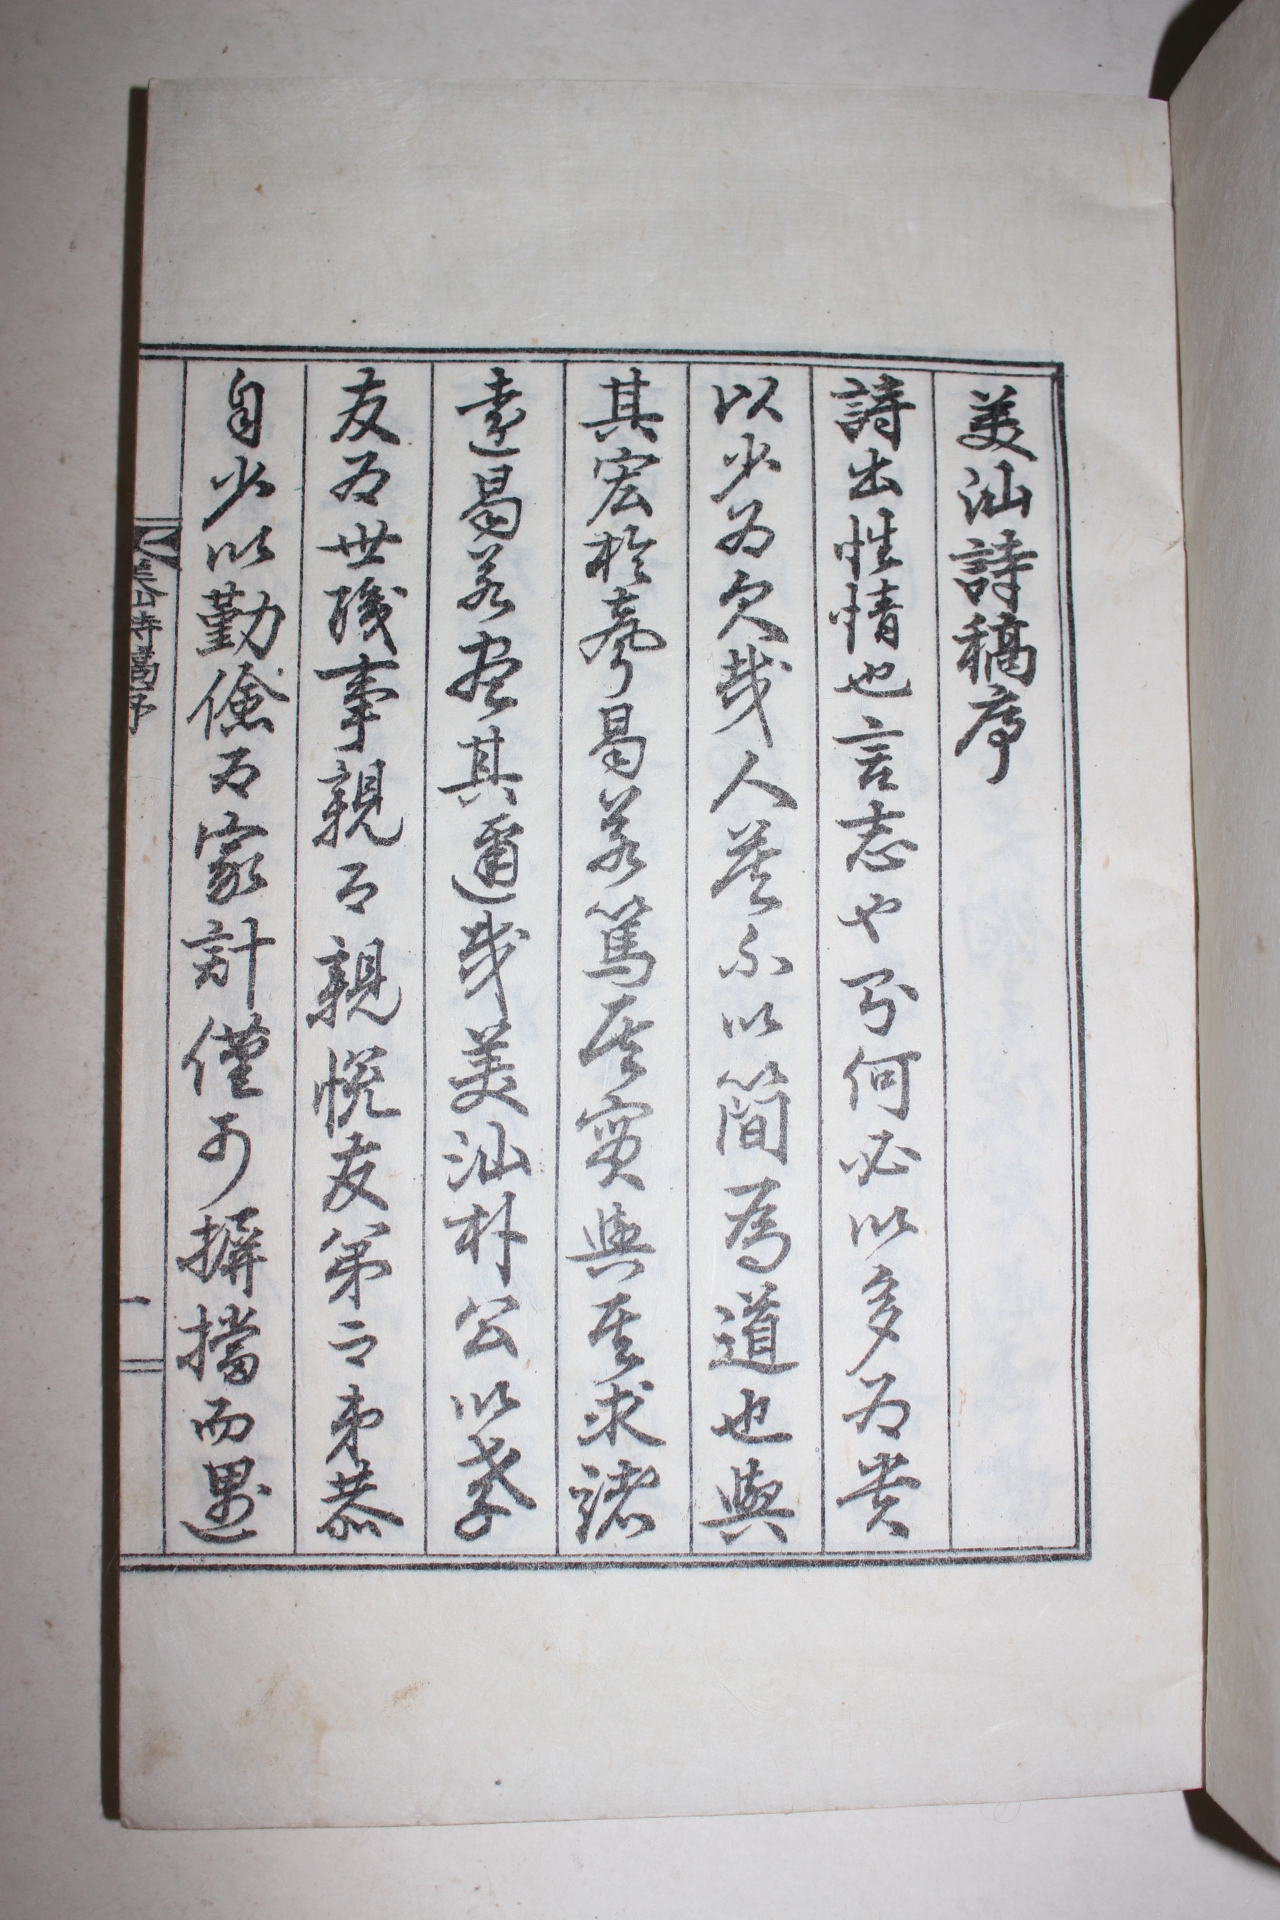 美汕詩稿序
詩出性情也言志也兮何必以多为貴
以少为欠哉人蓋不以簡為道也與
其宏於夸曷若篤其實與其求諸
遠曷若盡其邇哉美汕朴公以孝
友为世事親而親悅友弟而弟恭
自少以勤儉为家計僅可摒擋而遇
美汕詩稿序
一